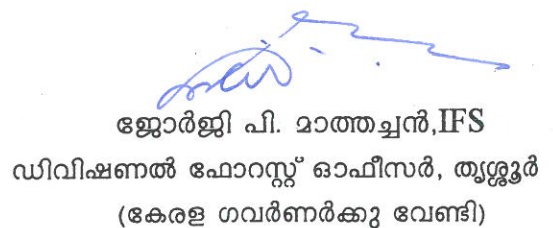 ജോർജി പി. മാത്തച്ചൻ,IFS
ഡിവിഷണൽ ഫോറസ്റ്റ് ഓഫീസർ, തൃശ്ശൂർ
(കേരള ഗവർണർക്കു വേണ്ടി)